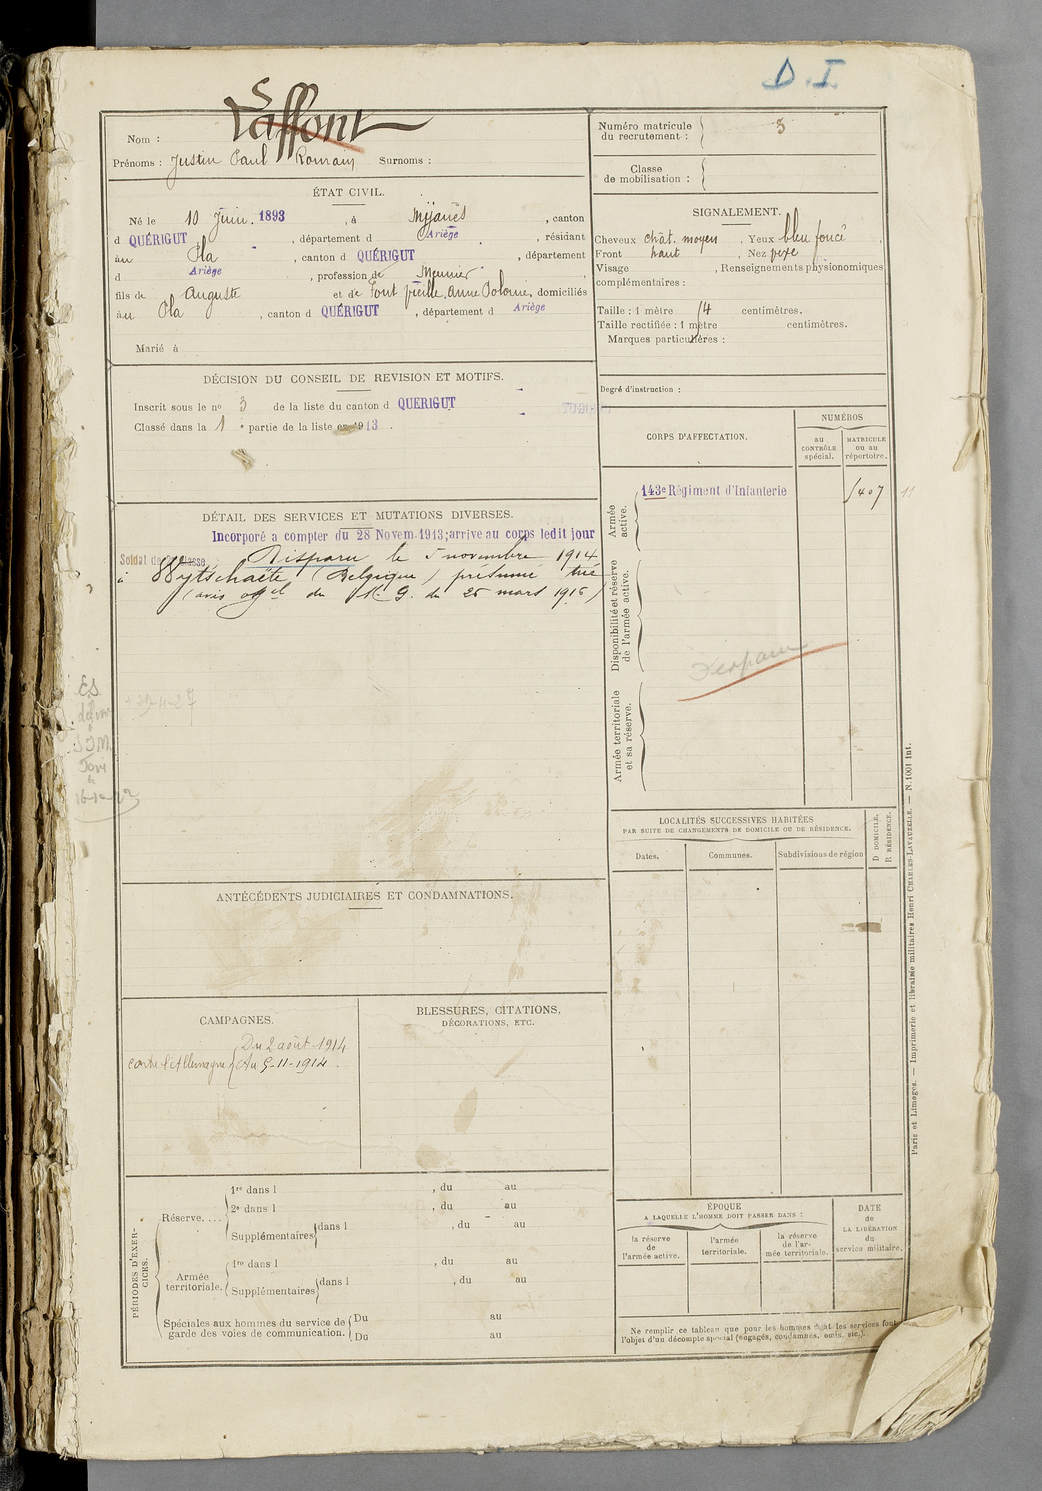 D. I.
Nom : Laffont
Prénoms : Justin Paul Romain Surnoms :
ÉTAT CIVIL.
Né le 10 Juin. 1893, à Mijanès, canton
d QUÉRIGUT, département d Ariège, résidant
àu Pla, canton d QUÉRIGUT, département
d Ariège, profession de Meunier
fils de Auguste et de Font vieille, Anne Polonie, domiciliés
àu Pla, canton d QUÉRIGUT, département d Ariège
Marié à
DÉCISION DU CONSEIL DE REVISION ET MOTIFS.
Inscrit sous le nº 3 de la liste du canton d QUERIGUT
Classé dans la 1 e partie de la liste en 1913.
DÉTAIL DES SERVICES ET MUTATIONS DIVERSES.
Incorporé a compter du 28 Novem. 1913; arrive au corps ledit jour
Soldat de 2e classe, Disparu le 5 novembre 1914
à Wytschaëte (Belgique) présumé tué
(avis offel du M. G. du 25 mars 1916)
ANTÉCÉDENTS JUDICIAIRES ET CONDAMNATIONS.
CAMPAGNES.
contre l'Allemagne { Du 2 août 1914
Au 5-11-1914.
BLESSURES, CITATIONS,
DÉCORATIONS, ETC.
PÉRIODES D'EXER-
CICES.
Réserve....
1re dans l , du au
2e dans l , du au
Supplémentaires } dans l , du au
Armée
territoriale.
1re dans l , du au
Supplémentaires } dans l , du au
Spéciales aux hommes du service de { Du au
garde des voies de communication. { Du au
Numéro matricule
du recrutement : 3
Classe
de mobilisation :
SIGNALEMENT.
Cheveux chât. moyen, Yeux bleu foncé,
Front haut, Nez
Visage , Renseignements physionomiques
complémentaires :
Taille : 1 mètre 54 centimètres.
Taille rectifiée : 1 mètre centimètres.
Marques particulières :
Degré d'instruction :
CORPS D'AFFECTATION.
NUMÉROS
au
CONTRÔLE
spécial.
MATRICULE
ou au
répertoire.
Armée
active.
143e Régiment d'Infanterie 5407
11
Disponibilité et réserve
de l'armée active.
Disparu
Armée territoriale
et sa réserve.
LOCALITÉS SUCCESSIVES HABITÉES
PAR SUITE DE CHANGEMENTS DE DOMICILE OU DE RÉSIDENCE.
Dates.
Communes.
Subdivisions de région
D DOMICILE.
R RÉSIDENCE.
ÉPOQUE
A LAQUELLE L'HOMME DOIT PASSER DANS :
la réserve
de
l'armée active.
l'armée
territoriale.
la réserve
de l'ar-
mée territoriale.
DATE
de
LA LIBÉRATION
du
service militaire.
Ne remplir ce tableau que pour les hommes dont les services font
l'objet d'un décompte spécial (engagés, condamnés, omis, etc.).
Paris et Limoges. — Imprimerie et librairie militaires Henri CHARLES-LAVAUZELLE. — N. 1001 int.